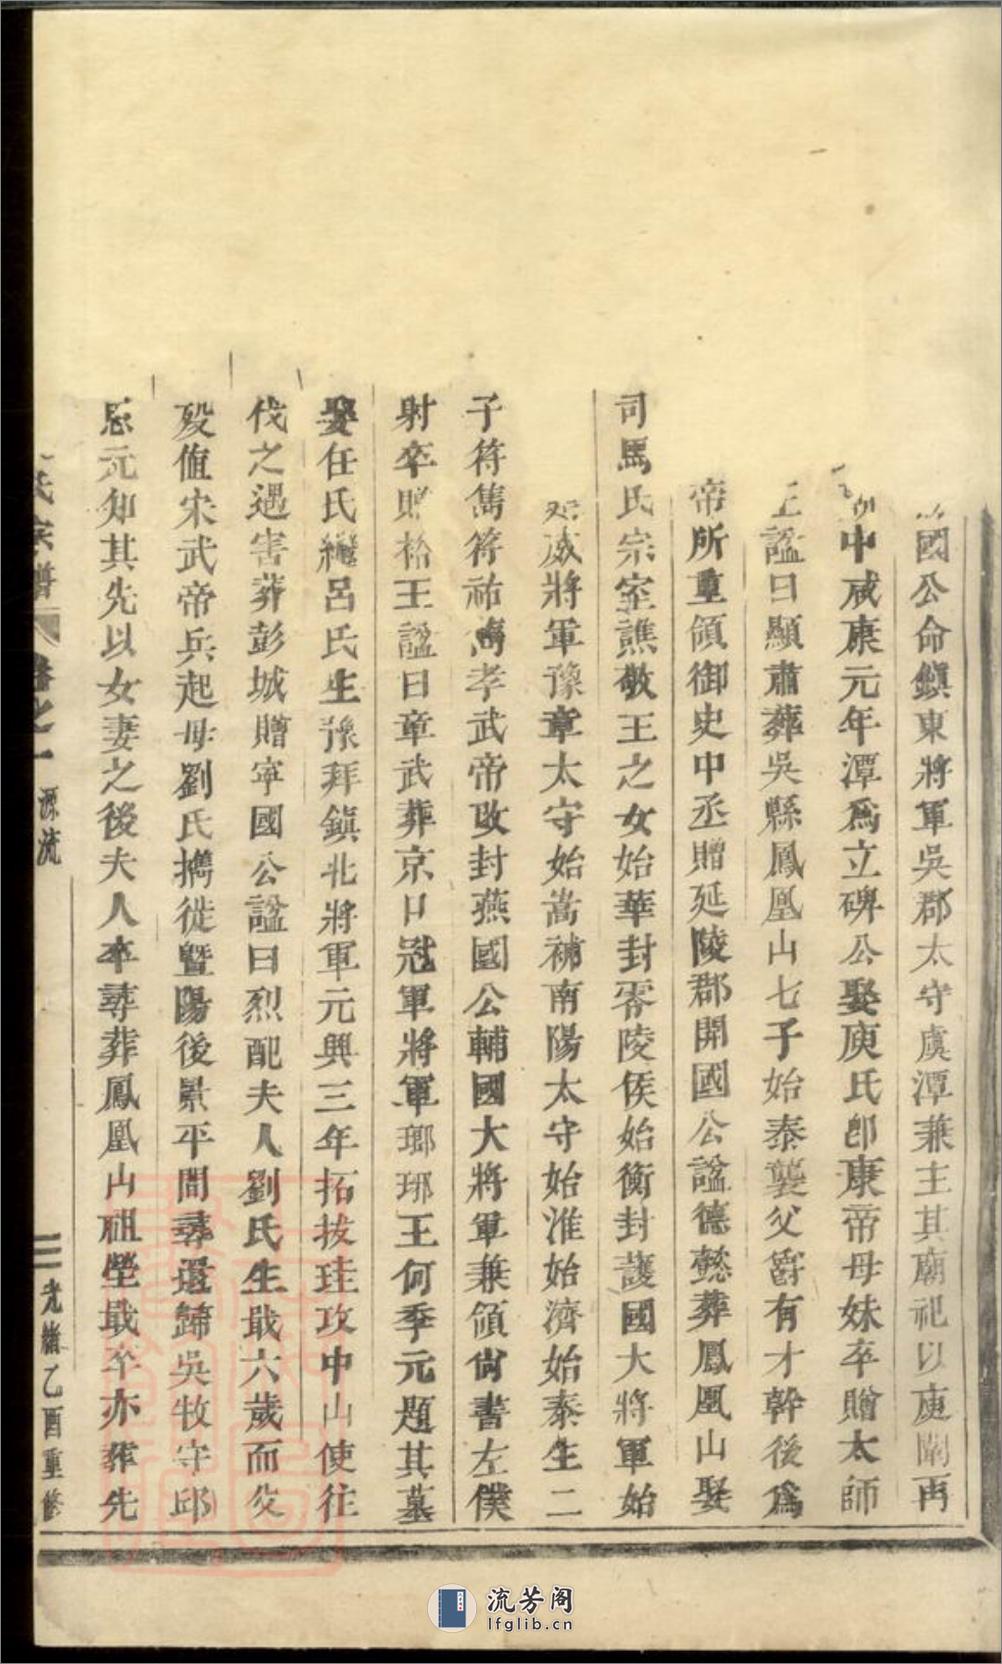 國公命鎮東將軍吳郡太守虞潭兼主其廟祀以庾闡再
中咸康元年潭爲立碑公娶庾氏卽康帝母妹卒贈太師
謚曰顯肅葬吳縣鳳凰山七子始泰襲父爵有才幹後爲
帝所重領御史中丞贈延陵郡開國公謚德懿葬鳳凰山娶
司馬氏宗室譙敬王之女始華封零陵侯始衡封護國大將軍始
威將軍豫章太守始嵩補南陽太守始淮始濟始泰生二
子符雋符祐雋孝武帝改封燕國公輔國大將軍兼領尙書左僕
射卒贈松王謚曰章武葬京口冠軍將軍瑯琊王何季元題其墓
娶任氏繼呂氏生豫拜鎮北將軍元興三年拓拔珪攻中山使往
伐之遇害葬彭城贈寧國公謚曰烈配夫人劉氏生戢六歲而父
歿値宋武帝兵起母劉氏攜徙曁陽後景平間尋還歸吳牧守邱
元知其先以女妻之後夫人卒尋葬鳳凰山祖塋戢卒亦葬先
氏宗譜 卷之一 源流 三 光緒乙酉重修
流芳阁
lfglib.cn